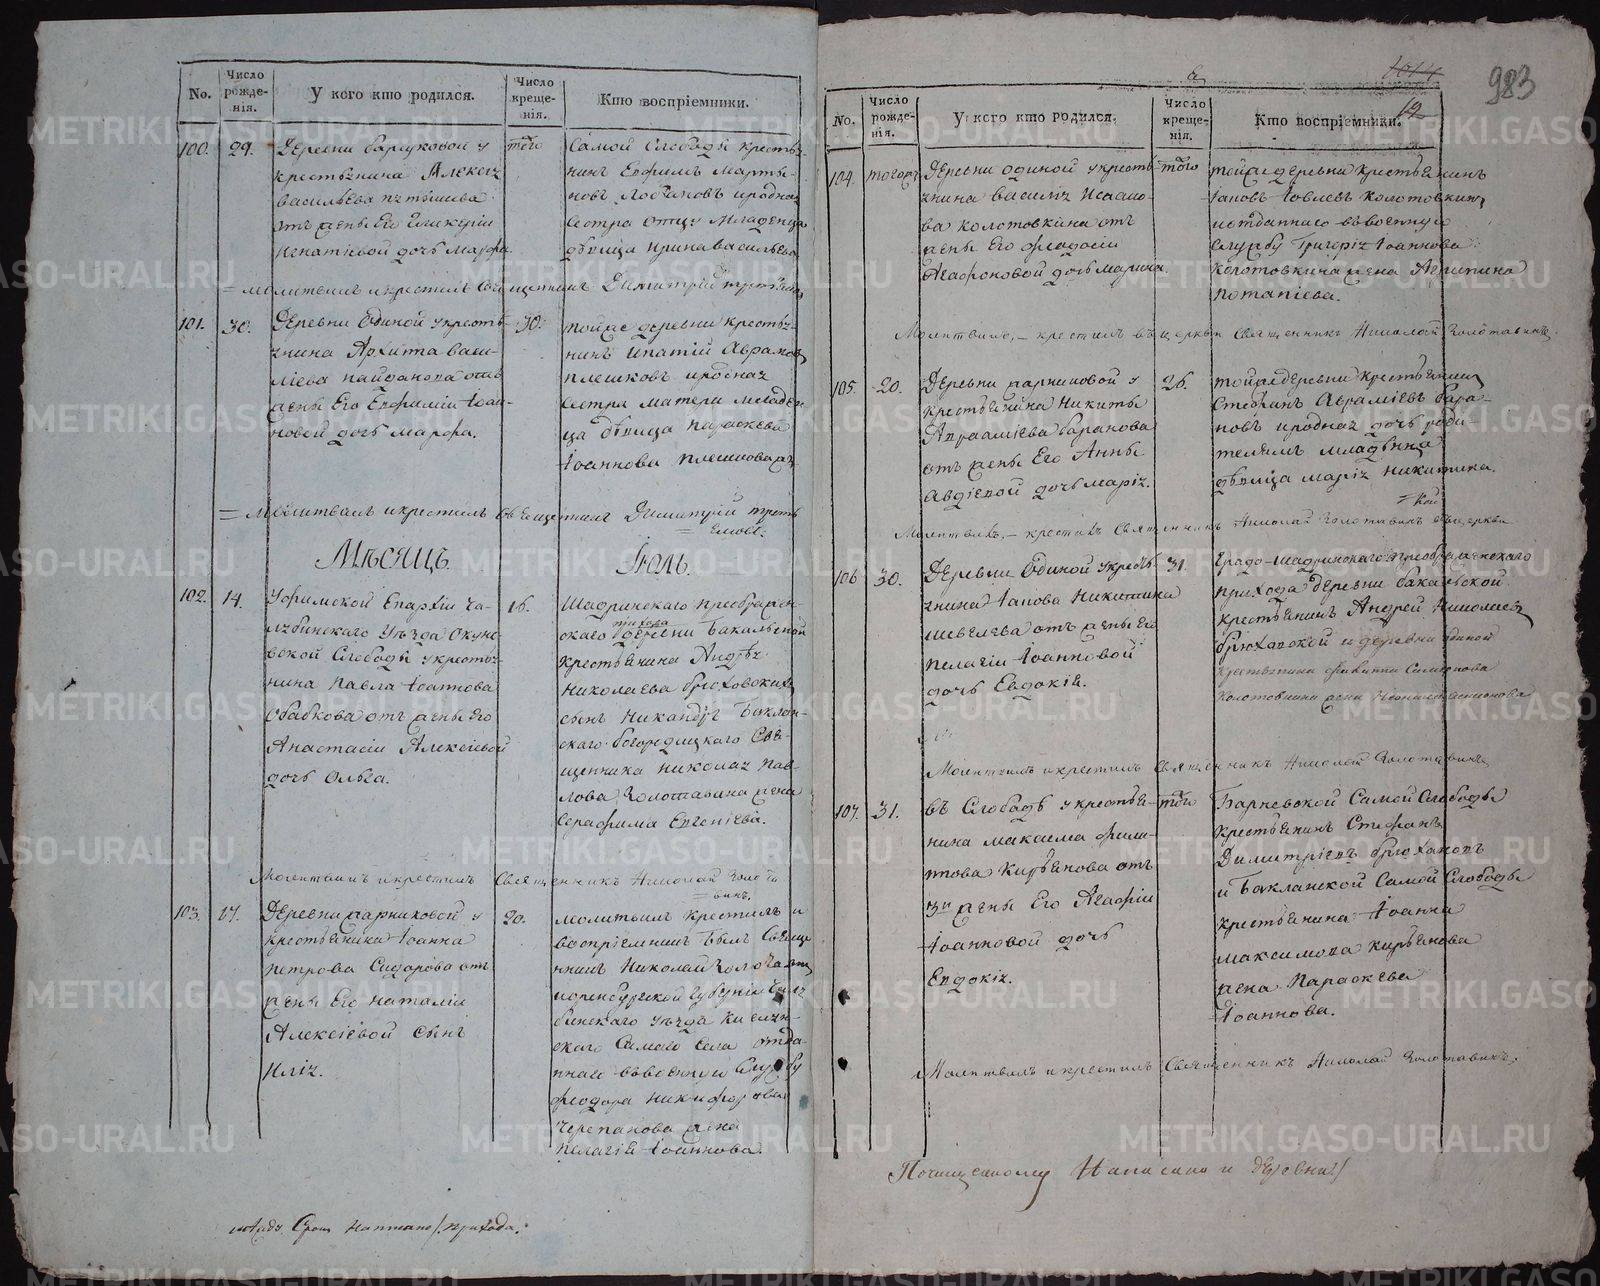 No.
Число рожде- нія.
У кого кто родился.
Число креще- нія.
Кто воспріемники.
100.
29.
Деревни
крестьянина Алексея
Васильева
отъ жены Его Гликеріи
Игнатіевой дочь Марфа
того
Самой Слободы крестья-
нинъ Ефимъ Марты-
новъ Лобановъ и родная
Сестра отцу Младенца
дѣвица Ирина Васильева
молитвилъ и крестилъ Священникъ Димитрій
101.
30.
Деревни Одиной у кресть-
янина Архипа Васи-
ліева Пайванова отъ
жены Его Евфиміи Іоан-
новой дочь Марфа.
30.
тойже деревни крестья-
нинъ Ипатій Аврамов
Плешковъ и родная
Сестра матери младен-
ца дѣвица Параскева
Іоаннова Плешкова
= Молитвилъ и крестилъ Священникъ Димитрій
Мѣсяцъ Іюль.
102.
14.
Уфимской Епархіи Че-
лябинскаго Уѣзда Окуне-
вской Слободы у крестья-
нина Павла Іоаннова
Обабкова отъ жены Его
Анастасіи Алексіевой
дочь Ольга.
16.
Шадринскаго Преображен-
скаго прихода деревни Бакальской
крестьянина Андрея
Николаева Брюховскихъ
сынъ Никандръ Баклан-
скаго Богородицкаго Свя-
щенника Николая Пав-
лова Золотавина жена
Серафима Евгеніева.
Молитвилъ и крестилъ Священникъ Николай Золота
= винъ.
103.
17.
Деревни Жарниковой у
крестьянина Іоанна
Петрова Сидорова отъ
жены Его Наталіи
Алексіевой сынъ
Илія.
20.
Молитвилъ крестилъ и
воспріемникъ былъ Священ
нникъ Николай Золотавин
и Оренбургской Губерніи Челя
бинскаго уѣзда
скаго Самаго Села отда-
ннаго въ военную Службу
Феодора Никифорова
Черепанова жена
Пелагія Іоаннова.
прихода.
983
1014
12
No.
Число рожде- нія.
У кого кто родился.
Число креще- нія.
Кто воспріемники.
104.
тогожъ
Деревни Одиной у кресть-
янина Василія Исаако-
ва Колотовкина отъ
жены Его Феодосіи
Агафоновой дочь Марина.
того
тойже деревни крестьянинъ
Іаковъ Іовлевъ Колотовкинъ
и отданнаго въ военную
Службу Григорія Іоаннова
Колотовкина жена Агрипина
Потапіева.
Молитвилъ, – крестилъ въ церкви Священникъ Николай Золотавинъ.
105.
20.
Деревни Жарниковой у
крестьянина Никиты
Авраамієва Баранова
отъ жены Его Анны
Авдіевой дочь Марія.
26.
тойже деревни крестьянинъ
Стефанъ Авраміевъ Бара-
новъ и родная дочь роди-
телямъ младенца
дѣвица Марія Никитина.
Молитвилъ, – крестилъ Священникъ Николай Золотавинъ въ церкви
106
30.
Деревни Одиной у кресть-
янина Іакова Никитина
Шевелева отъ жены Его
Пелагіи Іоанновой
дочь Евдокія.
31.
Градо-Шадринскаго Преображенскаго
прихода деревни Бакальской
крестьянинъ Андрей Николаевъ
Брюховской и деревни Одиной
крестьянина Филиппа Симеонова
Колотовкина жена
Молитвилъ и крестилъ Священникъ Николай Золотавинъ
107.
31.
Въ Слободѣ у крестья-
нина Максима Фили-
ппова Кирьянова отъ
3й жены Его Агафіи
Іоанновой дочь
Евдокія.
того
Барневской Самой Слободы
крестьянинъ Стефанъ
Димитріевъ Брюхановъ
и Бакланской Самой Слободы
крестьянина Іоанна
Максимова Кирьянова
жена Параскева
Іоаннова.
Молитвилъ и крестилъ Священникъ Николай Золотавинъ,
METRIKI.GASO-URAL.RU